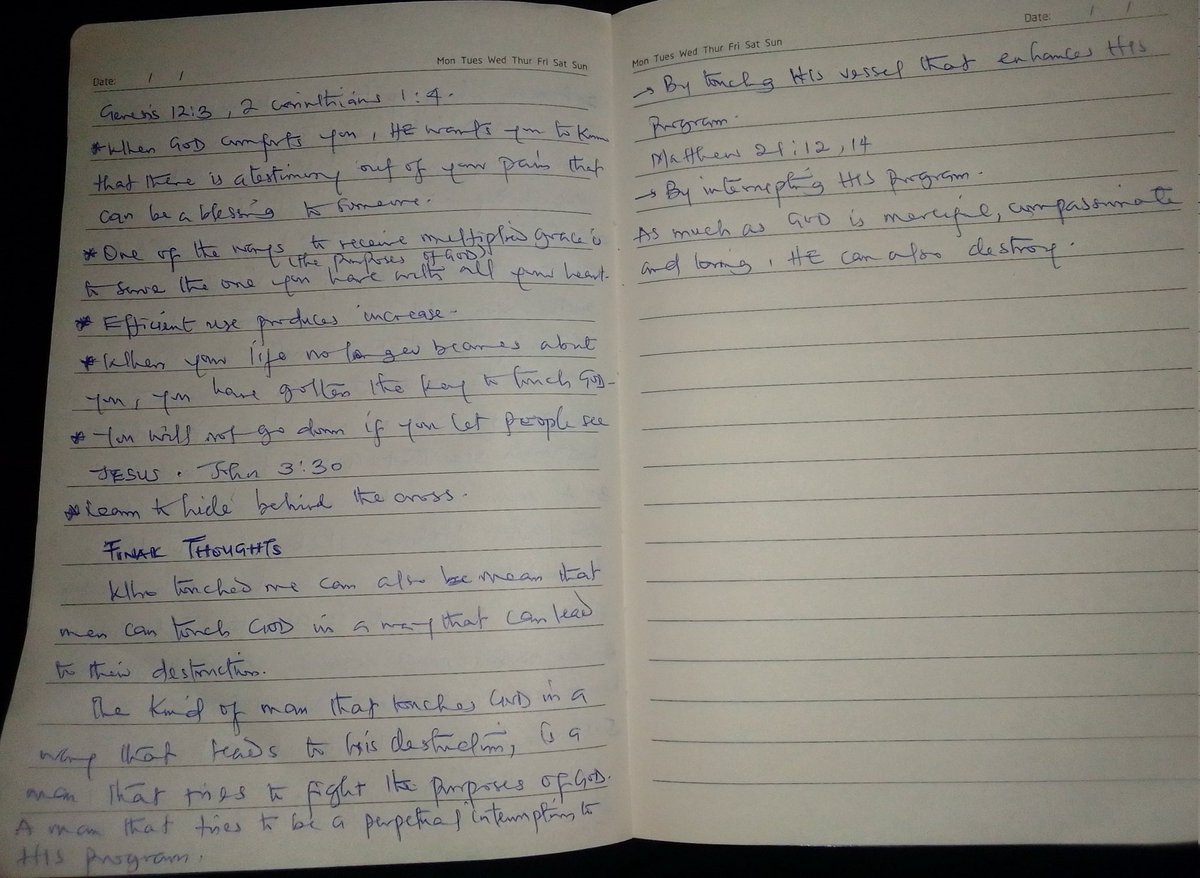 Date: / /
Mon Tues Wed Thur Fri Sat Sun
Genesis 12:3, 2 Corinthians 1:4.
* When GOD comforts you, HE wants you to know
that there is a testimony out of your pain that
can be a blessing to someone.
* One of the ways to receive multiplied grace is
(the purposes of GOD)
to serve the one you have with all your heart.
* Efficient use produces increase.
* When your life no longer becomes about
you, you have gotten the key to touch GOD.
* You will not go down if you let people see
JESUS. John 3:30
* Learn to hide behind the cross.
FINAL THOUGHTS
Who touched me can also be mean that
men can touch GOD in a way that can lead
to their destruction.
The kind of man that touches GOD in a
way that leads to his destruction, is a
man that tries to fight the purposes of GOD.
A man that tries to be a perpetual interruption to
HIS program.
Date: / /
Mon Tues Wed Thur Fri Sat Sun
→ By touching HIS vessel that enhances HIS
program.
Matthew 21:12,14
→ By interrupting HIS program.
As much as GOD is merciful, compassionate
and loving, HE can also destroy.